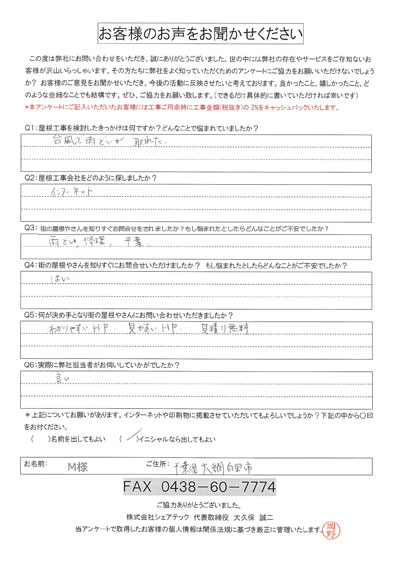 お客様のお声をお聞かせください
この度は弊社にお問い合わせをいただき、誠にありがとうございました。世の中には弊社の存在やサービスをご存知ないお
客様が沢山いらっしゃいます。その方たちに弊社をよく知っていただくためのアンケートにご協力をお願いいただけないでしょう
か？ お客様のご意見をお聞かせいただき、今後の活動に反映させたいと考えております。良かったこと、嬉しかったこと、ど
のような些細なことでも結構です。ぜひ、ご協力をお願い致します。（できるだけ具体的に書いていただければ幸いです）
*本アンケートにご記入いただいたお客様には工事ご用命時に工事金額(税抜き)の 2%をキャッシュバックいたします。
Q1：屋根工事を検討したきっかけは何ですか？どんなことで悩まれていましたか？
台風で雨といが 取れた.
Q2：屋根工事会社をどのように探しましたか？
インターネット
Q3： 街の屋根やさんを知りすぐお問合せをされましたか？もし悩まれたとしたらどんなことがご不安でしたか？
雨とい 修理. 千葉.
Q4：街の屋根やさんを知りすぐにお問合せいただけましたか？ もし悩まれたとしたらどんなことがご不安でしたか？
はい
Q5：何が決め手となり街の屋根やさんにお問い合わせいただきましたか？
わかりやすいHP. 見やすいHP. 見積り無料
Q6：実際に弊社担当者がお伺いしていかがでしたか？
良い
＊上記についてお願いがあります。インターネットや印刷物に掲載させていただいてもよろしいでしょうか？下記の中から〇印
をお付ください。
（ ）名前を出してもよい （ ／ ）イニシャルなら出してもよい
お名前： M様 ご住所： 千葉県大網白里市
FAX 0438－60－7774
ご協力ありがとうございました。
株式会社シェアテック 代表取締役 大久保 誠二
当アンケートで取得したお客様の個人情報は関係法規に基づき厳正に管理いたします。